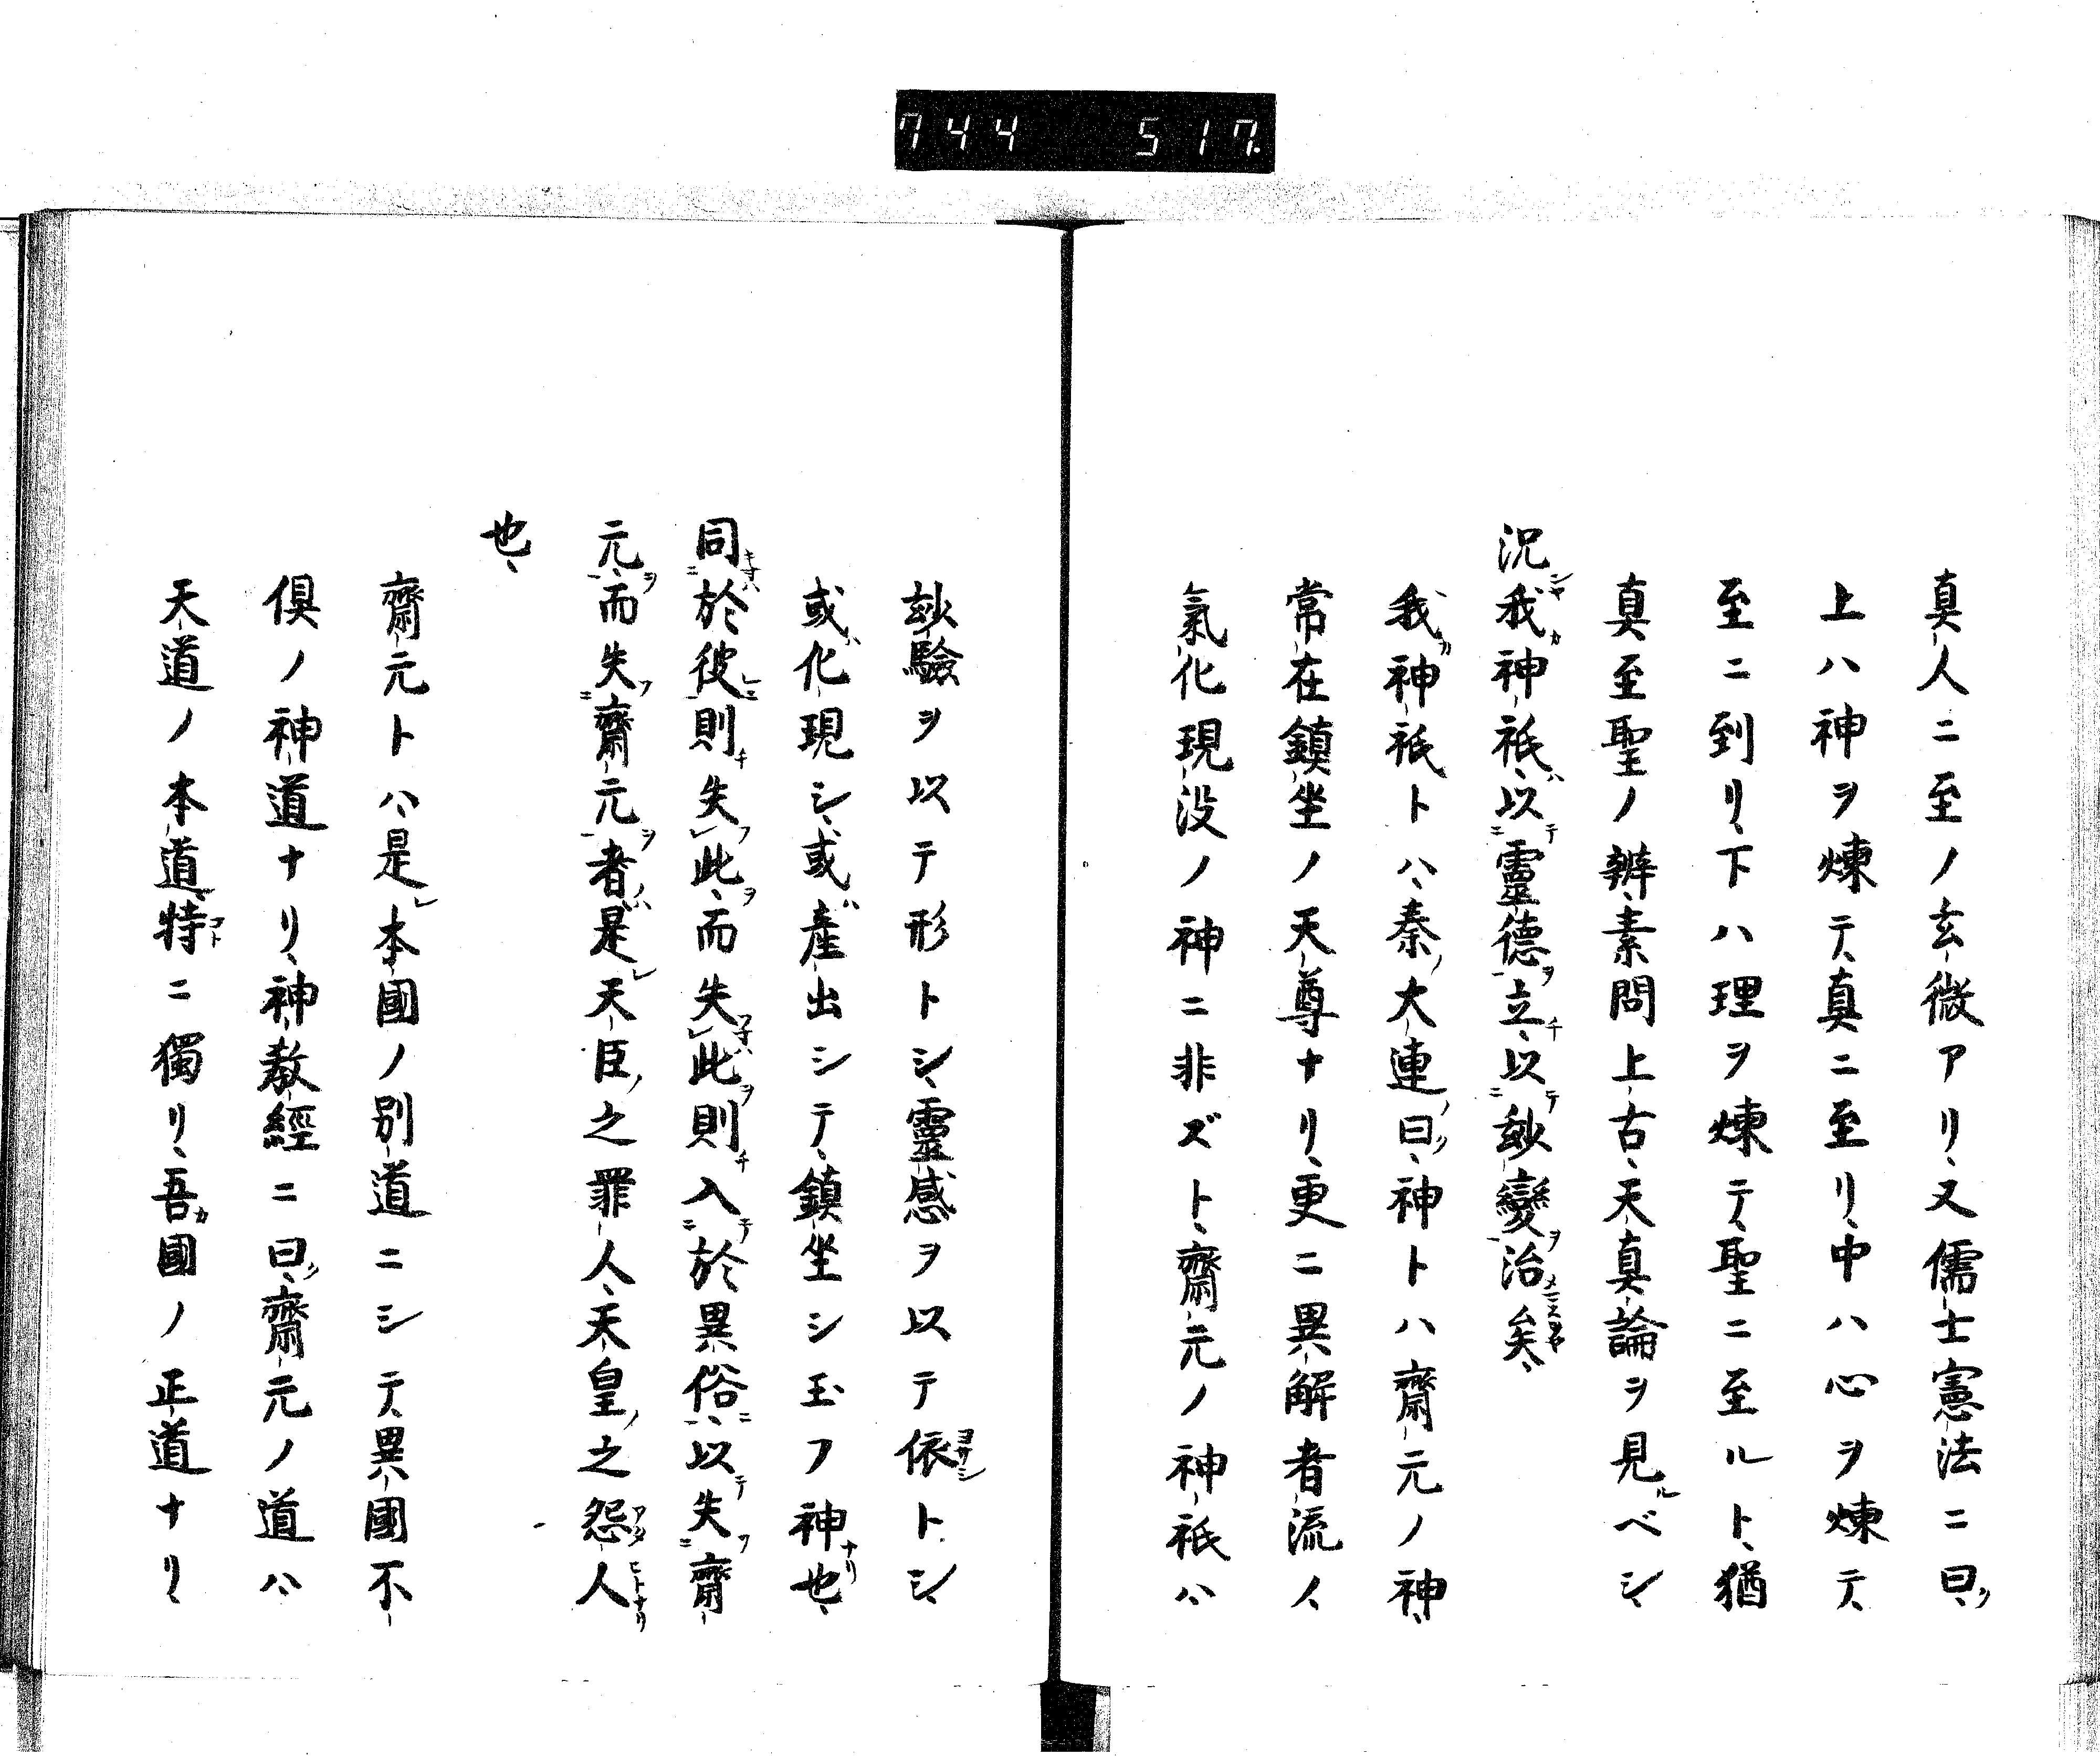 744 517
真人ニ至ノ玄微アリ、又儒士憲法ニ曰、
上ハ神ヲ煉テ、真ニ至リ、中ハ心ヲ煉テ、
至ニ到リ、下ハ理ヲ煉テ、聖ニ至ルト、猶
真至聖ノ辨、素問上古、天真論ヲ見ルベシ、
況我神祇、以靈德立、以玅變治矣、
我神祇トハ、秦ノ大連ノ曰、神トハ齋元ノ神、
常在鎮坐ノ天尊ナリ、更ニ異解者流ノ
氣化現没ノ神ニ非ズト、齋元ノ神祇ハ
玅驗ヲ以テ形トシ、靈感ヲ以テ依トシ、
或ハ化現シ、或ハ産出シテ、鎮坐シ玉フ神也、
同於彼則失此、而失此則入於異俗、以失齋
元、而失齋元者是天臣之罪人、天皇之怨人
也、
齋元トハ、是レ本國ノ別道ニシテ、異國不
倶ノ神道ナリ、神教經ニ曰、齋元ノ道ハ
天道ノ本道、特ニ獨リ、吾カ國ノ正道ナリ、